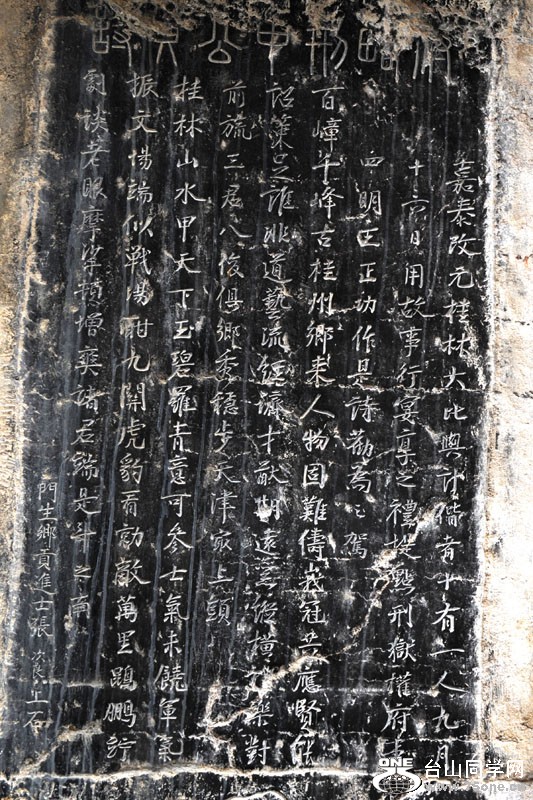 略刑公詩
嘉泰改元桂林大比與計偕者十有一人九月
十六日用故事行宴享之禮提點刑獄權府事
四明王正功作是詩勸為之駕
百嶂千峰古桂州鄉來人物固難儔峩冠共應賢能
詔策足誰非道藝流經濟才猷期遠器縱橫禮樂對
前旒三君八俊俱鄉秀穩步天津最上頭
桂林山水甲天下玉碧羅青意可參士氣未饒軍氣
振文場端似戰場酣九關虎豹看勍敵萬里鵾鵬佇
劇談老眼摩挲頓增爽諸君端是斗之南
門生鄉貢進士張次良上石
ONE 台山同学网